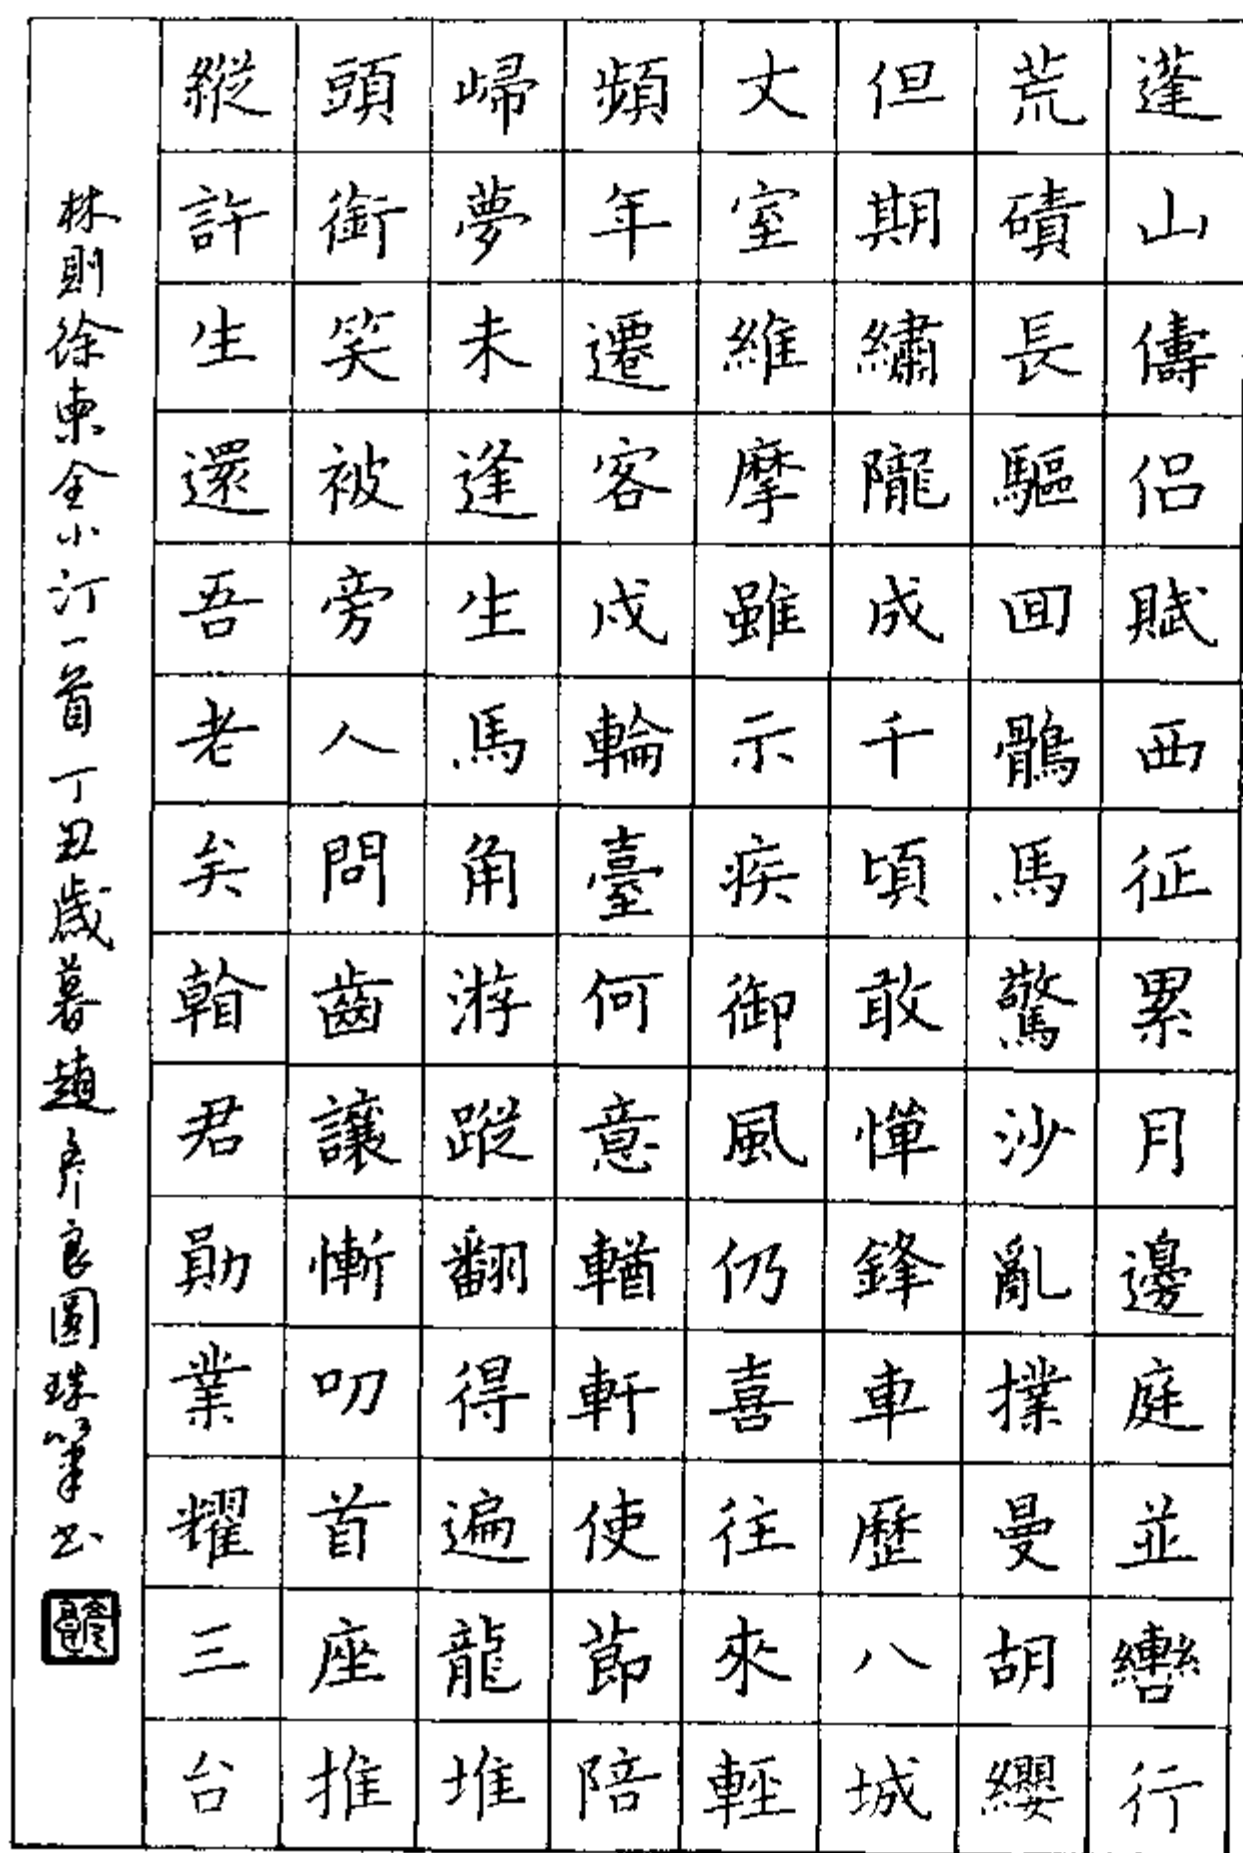 蓬山儔侶賦西征累月邊庭並轡行
荒磧長驅回鶻馬驚沙亂撲曼胡纓
但期繡隴成千頃敢憚鋒車歷八城
丈室維摩雖示疾御風仍喜往來輕
頻年遷客戍輪臺何意輶軒使節陪
歸夢未逢生馬角游蹤翻得遍龍堆
頭銜笑被旁人問齒讓慚叨首座推
縱許生還吾老矣輸君勛業耀三台
林則徐柬全小汀一首丁丑歲暮趙彥良圓珠筆書